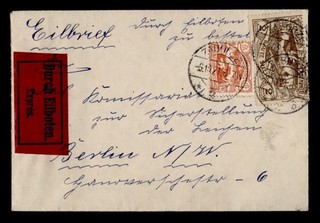 Eilbrief Durch Eilboten
zu bestel
Durch Eilboten.
Exprès.
Kommissariat
zur Sicherstellung
der Leichen
Berlin N/W.
Hanoverschestr - 6